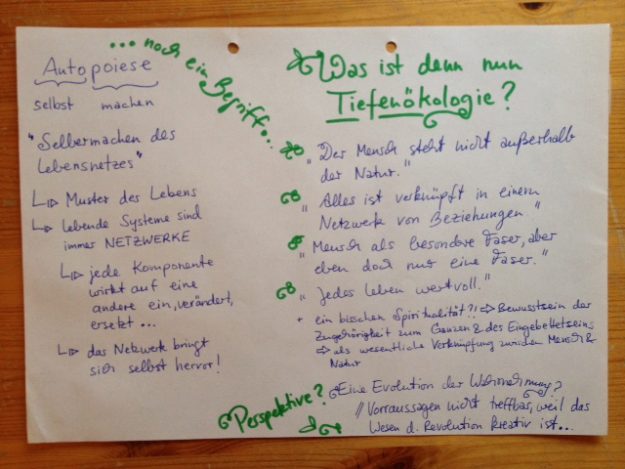 Autopoiese
selbst machen
"Selbermachen des
Lebensnetzes"
Muster des Lebens
lebende Systeme sind
immer NETZWERKE
jede Komponente
wirkt auf eine
andere ein, verändert,
ersetzt...
das Netzwerk bringt
sich selbst hervor!
... noch ein Begriff...
Was ist denn nun
Tiefenökologie?
"Der Mensch steht nicht außerhalb
der Natur."
"Alles ist verknüpft in einem
Netzwerk von Beziehungen."
"Mensch als besondere Faser, aber
eben doch nur eine Faser."
"Jedes Leben wertvoll."
+ ein bisschen Spiritualität?! ⇒ Bewusstsein der
Zugehörigkeit zum Ganzen & des Eingebettetseins
⇒ als wesentliche Verknüpfung zwischen Mensch &
Natur
Perspektive?
Eine Evolution der Wahrnehmung?
// Vorraussagen nicht treffbar, weil das
Wesen d. Revolution kreativ ist...